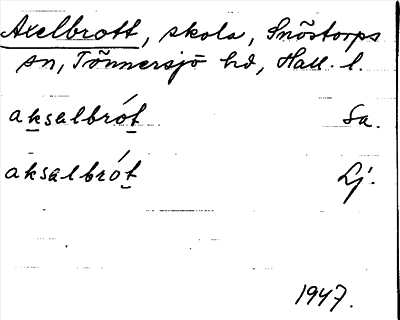 Axelbrott, skola, Snöstorps
sn, Tönnersjö hd, Hall. l.
aksalbrót Sa.
aksalbrót Lj.
1947.